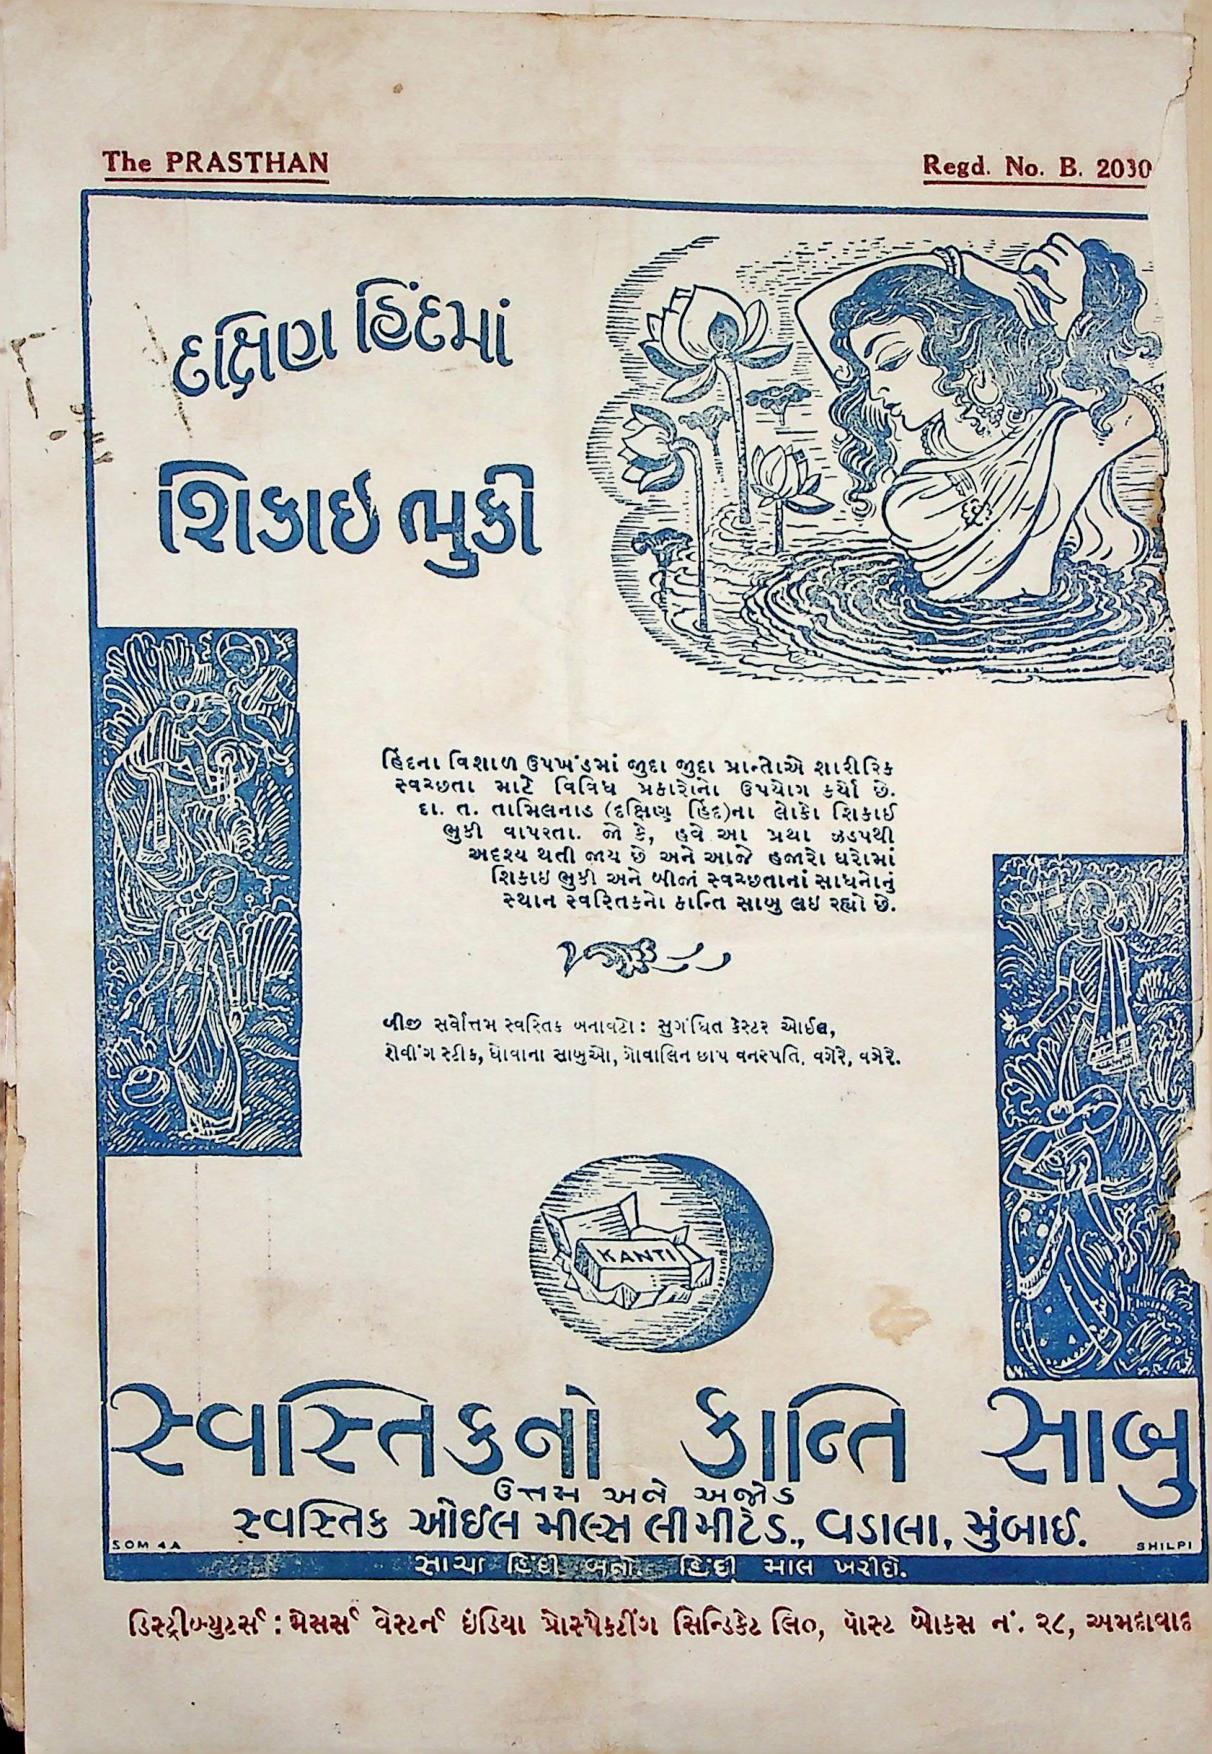 The PRASTHAN
Regd. No. B. 2030
દક્ષિણ હિંદમાં
શિકાઇ ભુકી
હિંદના વિશાળ ઉપખંડમાં જુદા જુદા પ્રાન્તોએ શારીરિક
સ્વચ્છતા માટે વિવિધ પ્રકારોનો ઉપયોગ કર્યો છે.
દા. ત. તામિલનાડ (દક્ષિણ હિંદ)ના લોકો શિકાઈ
ભુકી વાપરતા. જો કે, હવે આ પ્રથા ઝડપથી
અદ્રશ્ય થતી જાય છે અને આજે હજારો ઘરોમાં
શિકાઇ ભુકી અને બીજાં સ્વચ્છતાનાં સાધનોનું
સ્થાન સ્વસ્તિકનો કાન્તિ સાબુ લઇ રહ્યો છે.
બીજી સર્વોત્તમ સ્વસ્તિક બનાવટો: સુગંધિત કેસ્ટર ઓઈલ,
શેવીંગ સ્ટીક, ધોવાના સાબુઓ, ગોવાલિન છાપ વનસ્પતિ, વગેરે, વગેરે.
KANTI
સ્વસ્તિકનો કાન્તિ સાબુ
ઉત્તમ અને અજોડ
સ્વસ્તિક ઓઈલ મીલ્સ લીમીટેડ., વડાલા, મુંબાઈ.
SOM 4A
SHILPI
સાચા હિંદી બનો. હિંદી માલ ખરીદો.
ડિસ્ટ્રીબ્યુટર્સ : મેસર્સ વેસ્ટર્ન ઇંડિયા પ્રોસ્પેક્ટીંગ સિન્ડિકેટ લિ૦, પૉસ્ટ બોક્સ નં. ૨૮, અમદાવાદ